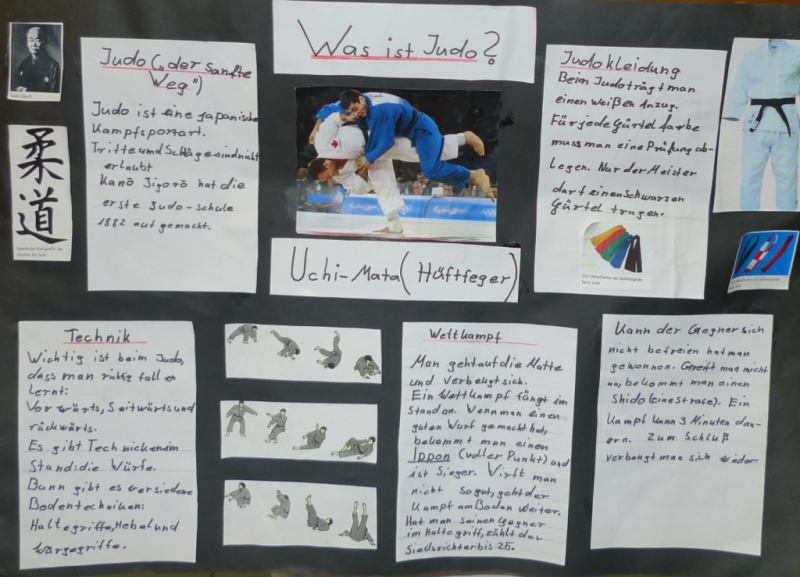 Was ist Judo?
Judo („der sanfte
Weg")
Judo ist eine japanische
Kampfsportart.
Tritte und Schläge sind nicht
erlaubt
Kanō Jigorō hat die
erste Judo-schule
1882 aufgemacht.
柔道
Uchi-Mata (Hüftfeger)
Judokleidung
Beim Judo trägt man
einen weißen Anzug.
Für jede Gürtel farbe
muss man eine Prüfung ab-
legen. Nur der Meister
darf einen Schwarzen
Gürtel tragen.
Technik
Wichtig ist beim Judo,
dass man richtig fallen
lernt:
Vorwärts, Seitwärts und
rückwärts.
Es gibt Technicken im
Stand: die Würfe.
Dann gibt es versiedene
Bodentechniken:
Haltegriffe, Hebel und
Würgegriffe.
Wettkampf
Man geht auf die Matte
und verbeugt sich.
Ein Wettkampf fängt im
Stand an. Wenn man einen
guten Wurf gemacht hat,
bekommt man einen
Ippon (voller Punkt) und
ist Sieger. Wirft man
nicht so gut, geht der
Kampf am Boden weiter.
Hat man seinen Gegner
im Haltegriff, zählt der
Siedsrichter bis 25.
Kann der Gegner sich
nicht befreien hat man
gewonnen. Greift man nicht
an, bekommt man einen
Shido (eine strafe). Ein
Kampf kann 3 Minuten dau-
ern. Zum Schluß
verbeugt man sich wieder.